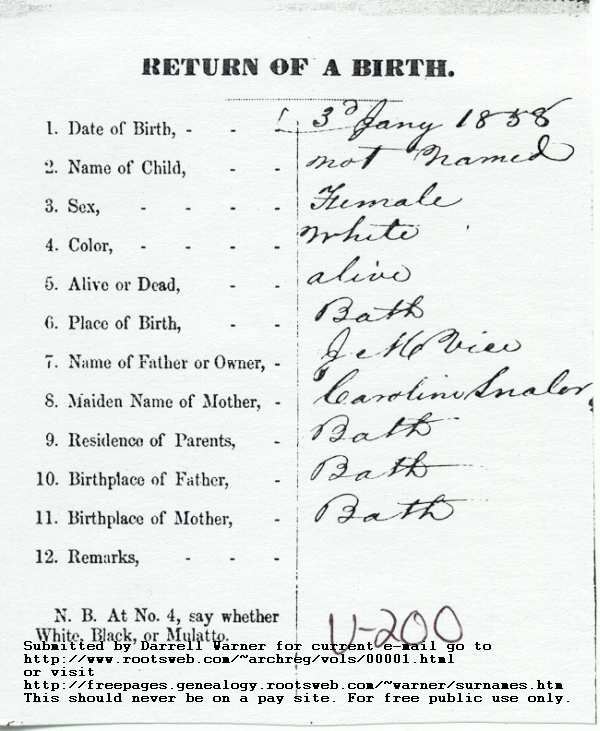 RETURN OF A BIRTH.
1. Date of Birth, - - - 3d Jany 1858
2. Name of Child, - - not Named
3. Sex, - - - - Female
4. Color, - - - - White
5. Alive or Dead, - - alive
6. Place of Birth, - - Bath
7. Name of Father or Owner, - J M Vice
8. Maiden Name of Mother, - Caroline
9. Residence of Parents, - Bath
10. Birthplace of Father, - Bath
11. Birthplace of Mother, - Bath
12. Remarks, - - -
N. B. At No. 4, say whether
White, Black, or Mulatto.
V-200
Submitted by Darrell Warner for current e-mail go to
http://www.rootsweb.com/~archreg/vols/00001.html
or visit
http://freepages.genealogy.rootsweb.com/~warner/surnames.htm
This should never be on a pay site. For free public use only.